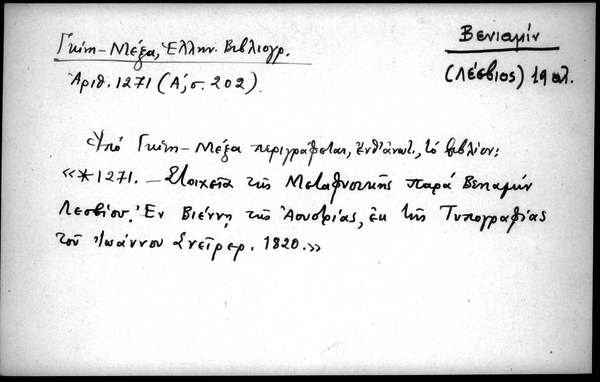 Γκίνη-Μέξα, Ἑλλην. Βιβλιογρ.
Ἀριθ. 1271 (Α΄, σ. 202).
Βενιαμίν
(Λέσβιος) 19 αἰ.
Ὑπό Γκίνη-Μέξα περιγράφεται, ἔνθ' ἀνωτ., τό βιβλίον:
«*1271. – Στοιχεῖα τῆς Μεταφυσικῆς παρά Βενιαμίν
Λεσβίου. Ἐν Βιέννῃ τῆς Αουστρίας, ἐκ τῆς Τυπογραφίας
τοῦ Ἰωάννου Σνεῖρερ. 1820.»